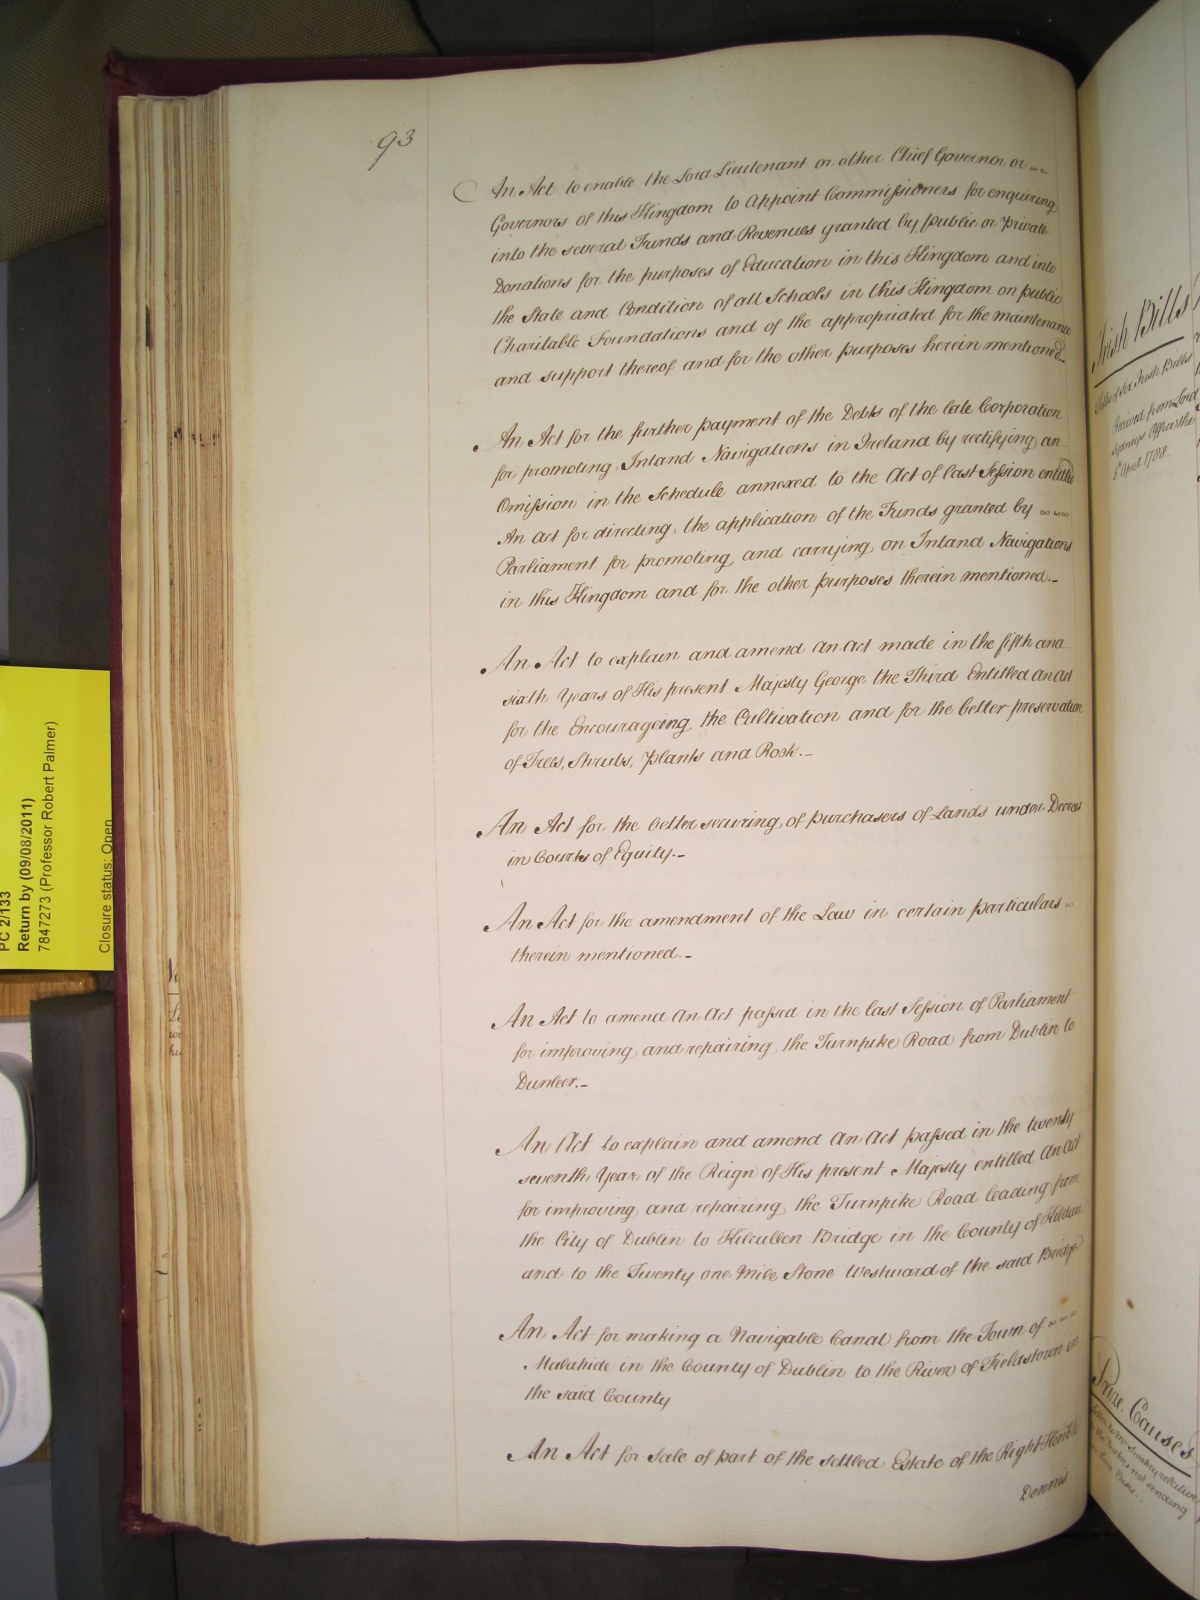 93
An Act to enable the Lord Lieutenant or other Chief Governor or
Governors of this Kingdom to Appoint Commissioners for enquiring
into the several Funds and Revenues granted by public or private
Donations for the purposes of Education in this Kingdom and into
the State and Condition of all Schools in this Kingdom on public
Charitable Foundations and of the appropriated for the maintenance
and support thereof and for the other purposes herein mentioned._
An Act for the further payment of the Debts of the late Corporation
for promoting Inland Navigations in Ireland by rectifying an
Omission in the Schedule annexed to the Act of last Session entitled
An act for directing the application of the Funds granted by
Parliament for promoting and carrying on Inland Navigations
in this Kingdom and for the other purposes therein mentioned._
An Act to explain and amend an act made in the fifth and
sixth Years of His present Majesty George the Third Entitled an act
for the Encourageing the Cultivation and for the better preservation
of Trees, Shrubs, Plants and Roots._
An Act for the better securing of purchasers of Lands under Decrees
in Courts of Equity._
An Act for the amendment of the Law in certain particulars
therein mentioned._
An Act to amend an Act passed in the last Session of Parliament
for improving and repairing the Turnpike Road from Dublin to
Dunleer._
An Act to explain and amend an Act passed in the twenty
seventh Year of the Reign of His present Majesty entitled An Act
for improving and repairing the Turnpike Road leading from
the City of Dublin to Kilcullen Bridge in the County of Kildare
and to the Twenty one Mile Stone Westward of the said Bridge
An Act for making a Navigable Canal from the Town of
Malahide in the County of Dublin to the River of Fieldstown in
the said County
An Act for Sale of part of the settled Estate of the Right Honble
Dennis
Irish Bills
Titles of six Irish Bills
Received from Lord
Sydneys Office the
6 April 1788
Prize Causes
not sending
PC 2/133
Return by (09/08/2011)
7847273 (Professor Robert Palmer)
Closure status: Open